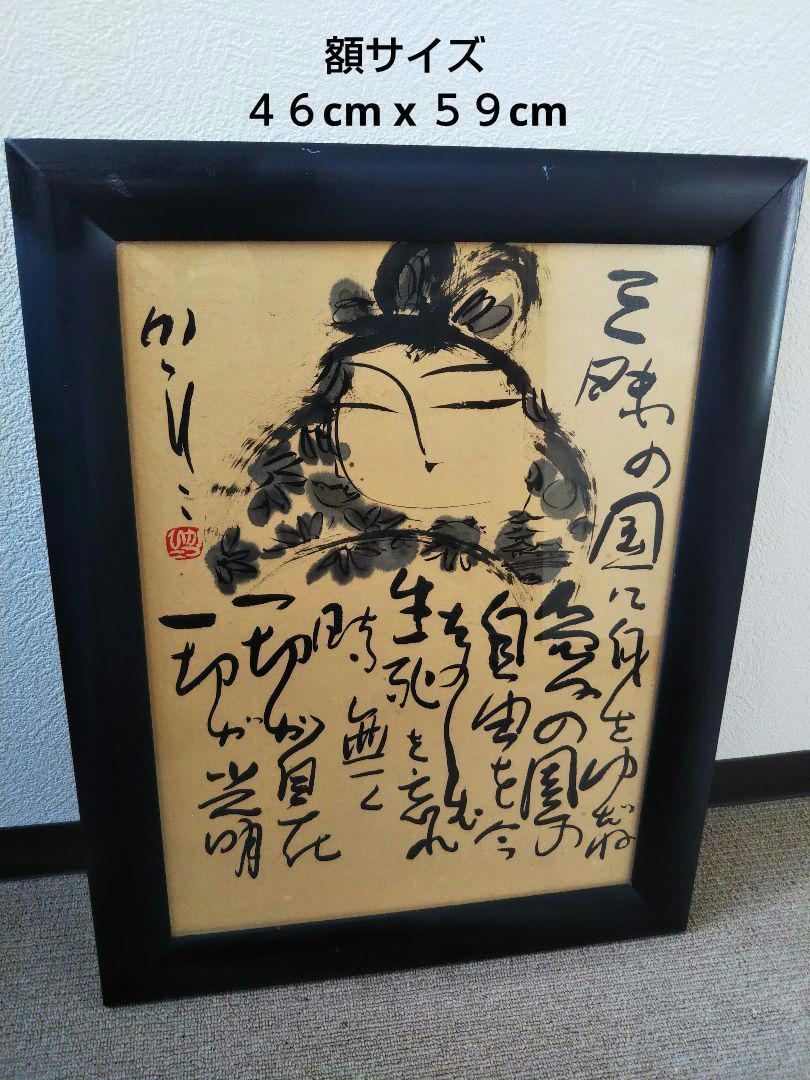 額サイズ
４６cm x ５９cm
三昧の国に身をゆだね
の国の
自由を今
たのしむ
生死を忘れ
時無く
一切が自在
一切が光明